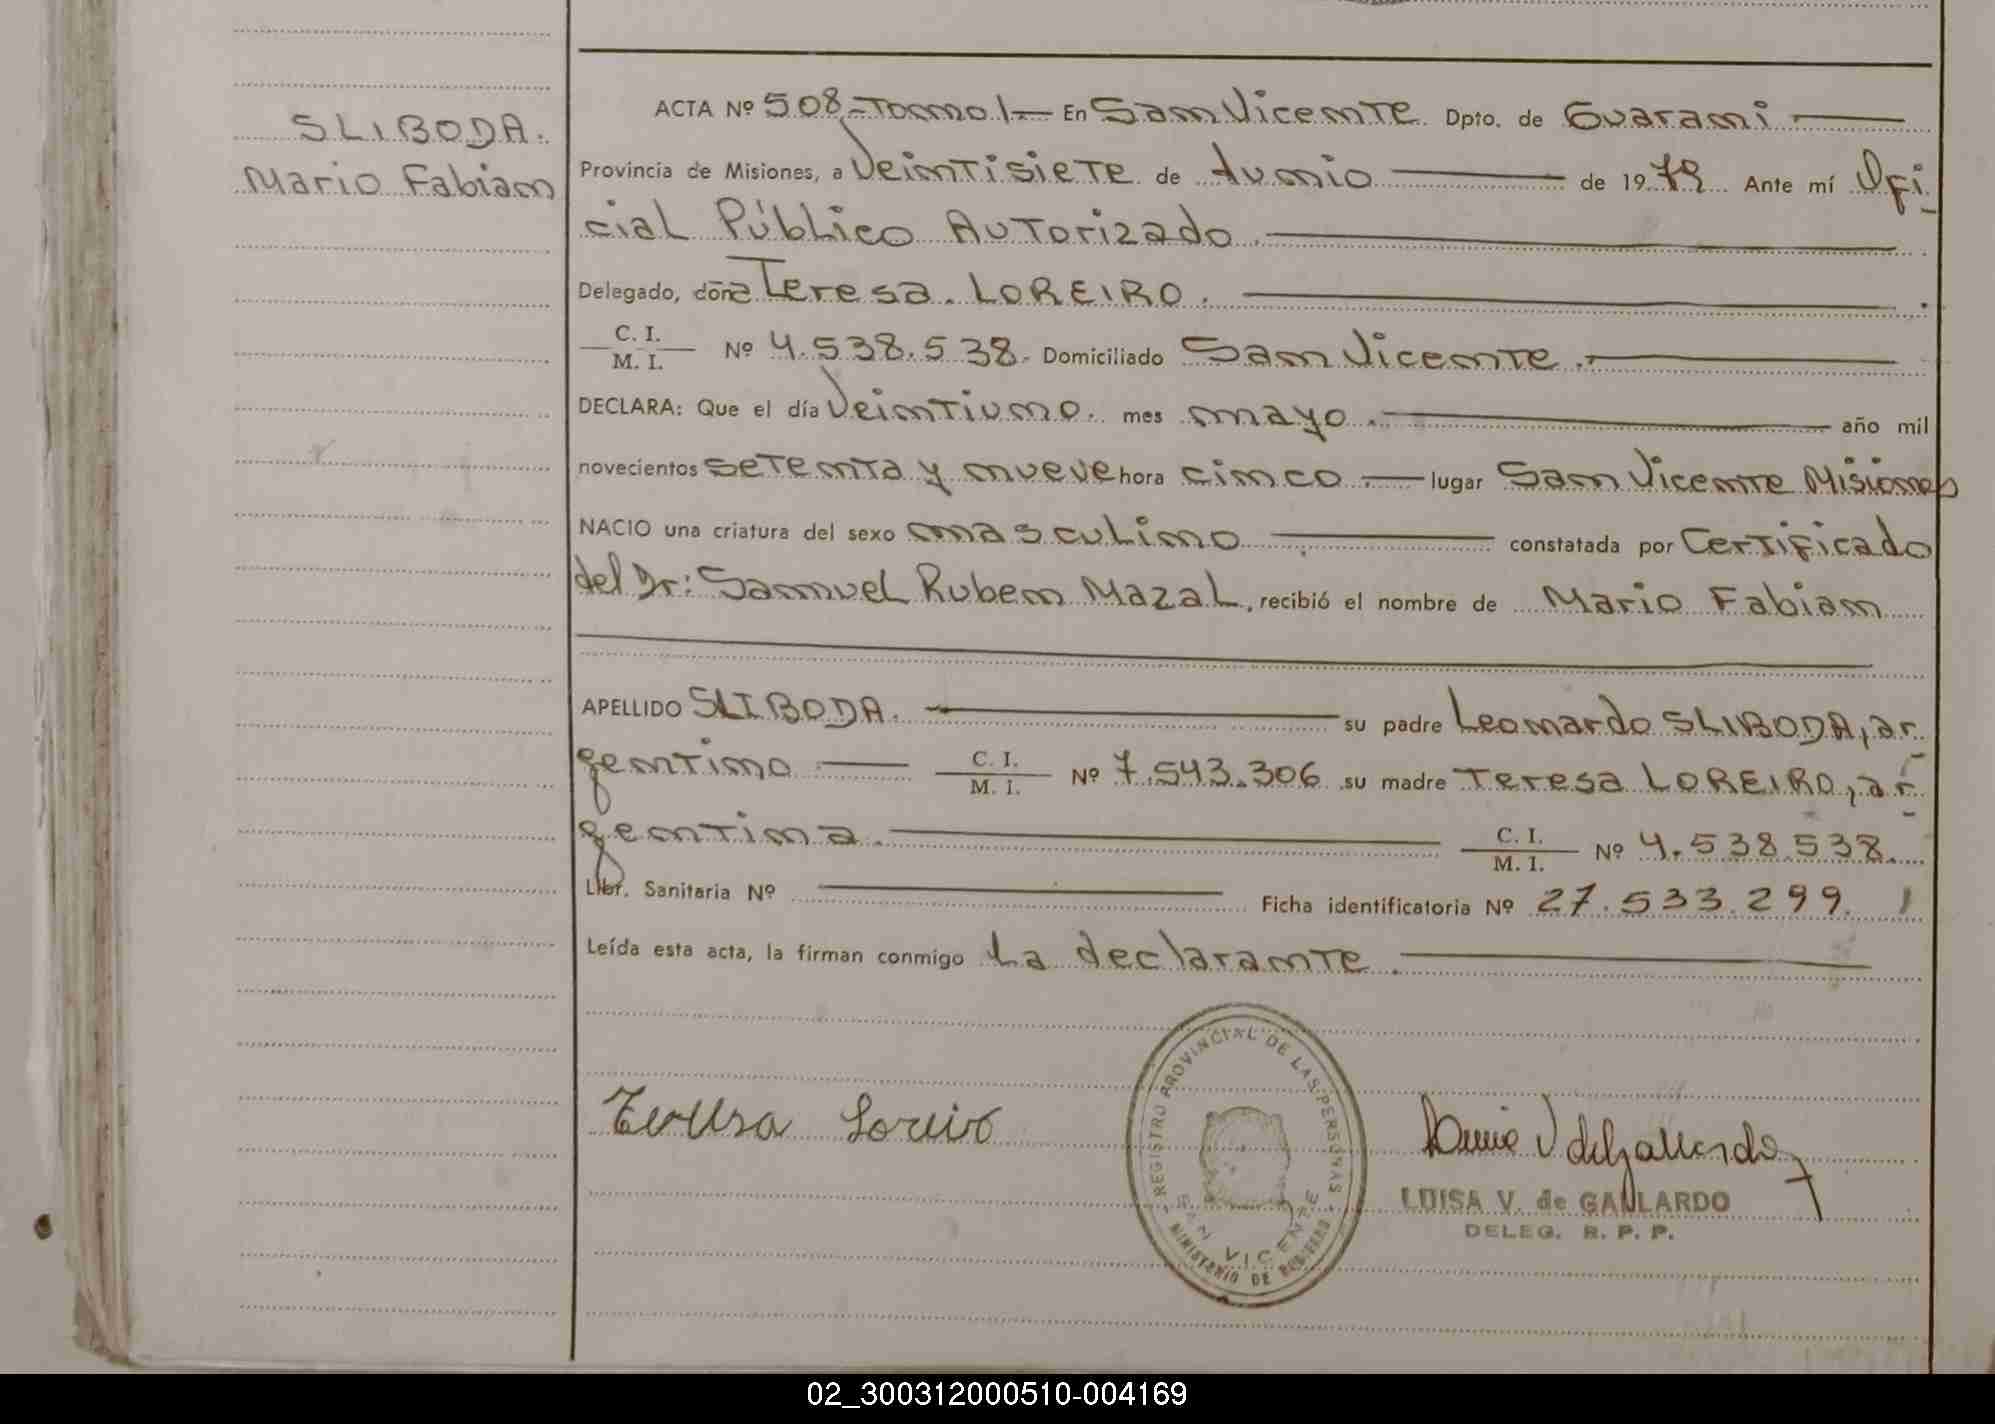 SLIBODA.
Mario Fabian
ACTA Nº 508=Tomo I— En San Vicente Dpto. de Guarani
Provincia de Misiones, a Veintisiete de Junio de 1979 Ante mí Ofi-
cial Público Autorizado.
Delegado, doña Teresa. LOREIRO.
C. I.
M. I. Nº 4.538.538. Domiciliado San Vicente.
DECLARA: Que el día Veintiuno. mes mayo. año mil
novecientos setenta y nueve hora cinco. lugar San Vicente Misiones
NACIO una criatura del sexo masculino constatada por Certificado
del Dr: Samuel Ruben Mazal, recibió el nombre de Mario Fabian
APELLIDO SLIBODA. su padre Leonardo SLIBODA, ar-
gentino C. I. M. I. Nº 7.543.306 su madre Teresa LOREIRO, ar-
gentina. C. I. M. I. Nº 4.538.538.
Libr. Sanitaria Nº Ficha identificatoria Nº 27.533.299.
Leída esta acta, la firman conmigo La declarante.
Teresa Loreiro
REGISTRO PROVINCIAL DE LAS PERSONAS
SAN VICENTE
MINISTERIO DE GOBIERNO
Luisa V de Gallardo
LUISA V. de GALLARDO
DELEG. R. P. P.
02_300312000510-004169